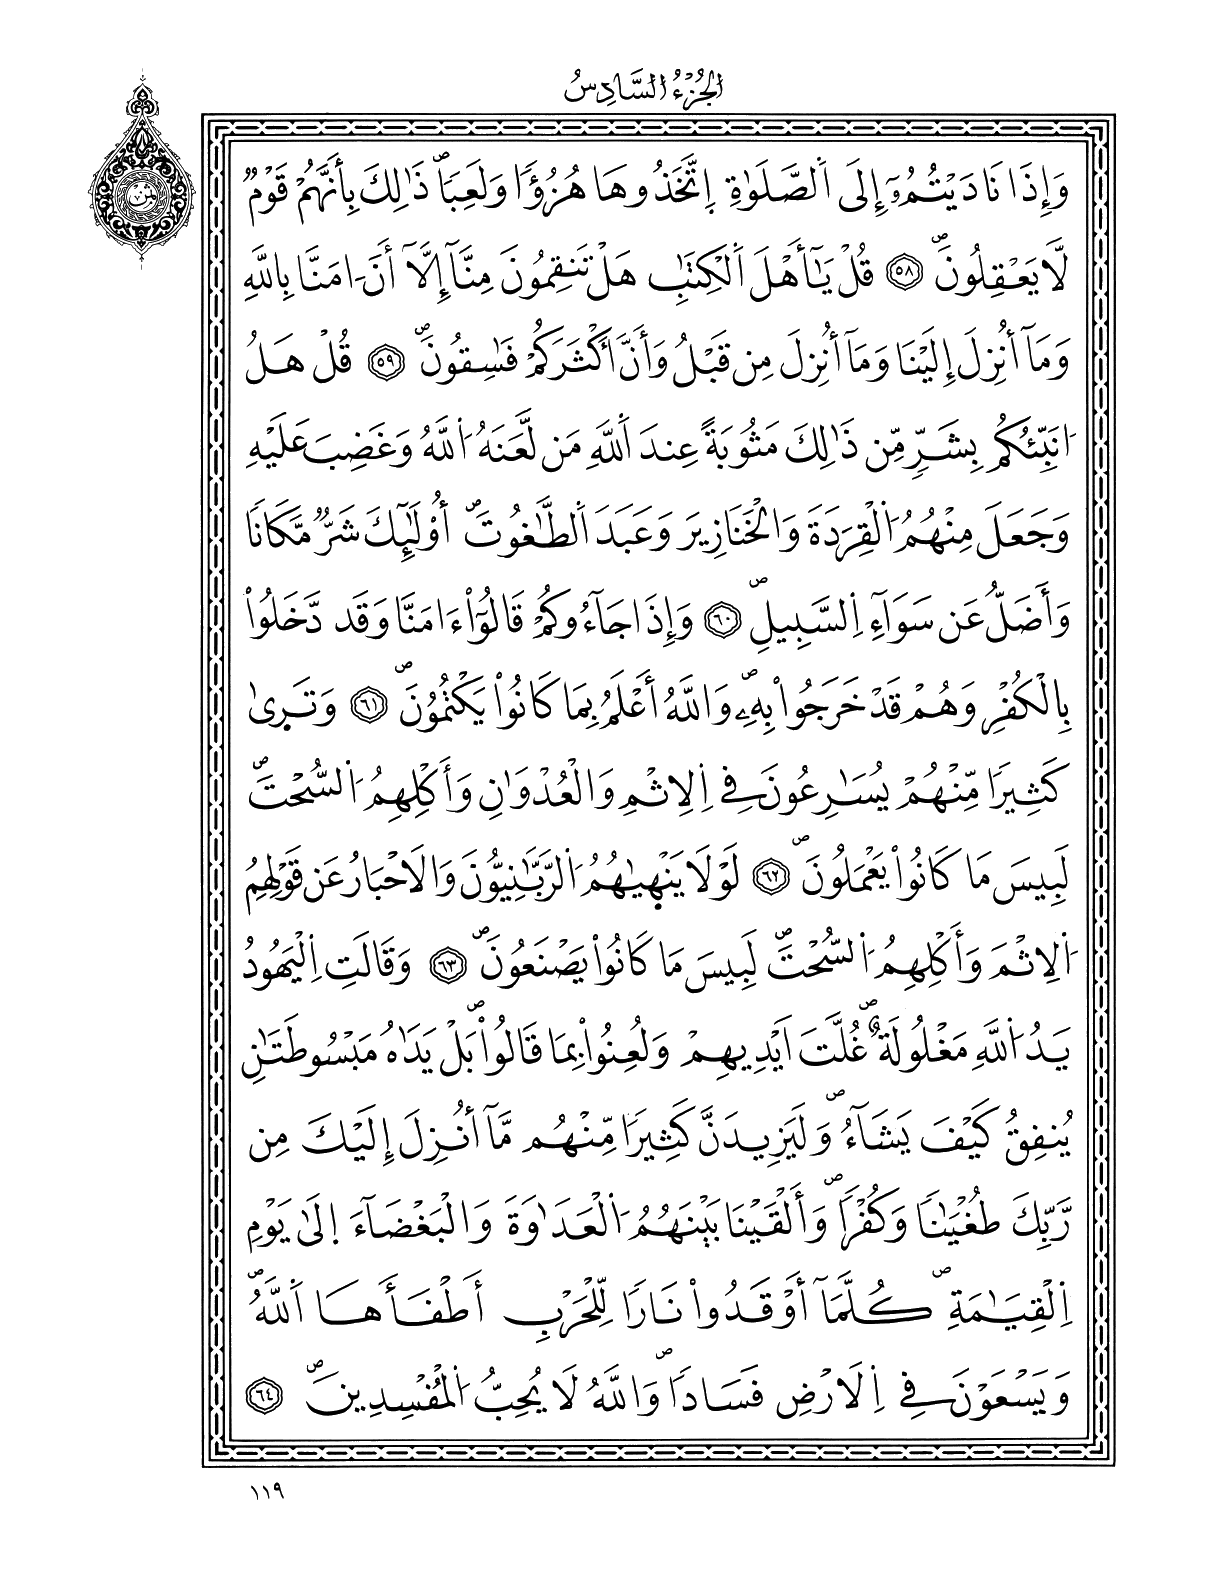 الجُزْءُ السَّادِسُ
ثمن
وَإِذَا نَادَيْتُمُۥٓ إِلَى اَ۬لصَّلَوٰةِ اِ۪تَّخَذُوهَا هُزُؤاٗ وَلَعِباٗۖ ذَٰلِكَ بِأَنَّهُمْ قَوْمٞ
لَّا يَعْقِلُونَۖ ٥٨ قُلْ يَٰٓأَهْلَ اَ۬لْكِتَٰبِ هَلْ تَنقِمُونَ مِنَّآ إِلَّآ أَنَ اٰمَنَّا بِاللَّهِ
وَمَآ أُنزِلَ إِلَيْنَا وَمَآ أُنزِلَ مِن قَبْلُ وَأَنَّ أَكْثَرَكُمْ فَٰسِقُونَۖ ٥٩ قُلْ هَلُ
ا۟نَبِّئُكُم بِشَرّٖ مِّن ذَٰلِكَ مَثُوبَةً عِندَ اَ۬للَّهِ مَن لَّعَنَهُ اُ۬للَّهُ وَغَضِبَ عَلَيْهِ
وَجَعَلَ مِنْهُمُ اُ۬لْقِرَدَةَ وَالْخَنَازِيرَ وَعَبَدَ اَ۬لطَّٰغُوتَۖ أُوْلَٰٓئِكَ شَرّٞ مَّكَاناٗ
وَأَضَلُّ عَن سَوَآءِ اِ۬لسَّبِيلِۖ ٦٠ وَإِذَا جَآءُوكُمْ قَالُوٓاْ ءَامَنَّا وَقَد دَّخَلُواْ
بِالْكُفْرِ وَهُمْ قَدْ خَرَجُواْ بِهِۦۖ وَاللَّهُ أَعْلَمُ بِمَا كَانُواْ يَكْتُمُونَۖ ٦١ وَتَر۪ىٰ
كَثِيراٗ مِّنْهُمْ يُسَٰرِعُونَ فِے اِ۬لِاثْمِ وَالْعُدْوَٰنِ وَأَكْلِهِمُ اُ۬لسُّحْتَۖ
لَبِيسَ مَا كَانُواْ يَعْمَلُونَۖ ٦٢ لَوْلَا يَنْه۪يٰهُمُ اُ۬لرَّبَّٰنِيُّونَ وَالَاحْبَارُ عَن قَوْلِهِمُ
اُ۬لِاثْمَ وَأَكْلِهِمُ اُ۬لسُّحْتَۖ لَبِيسَ مَا كَانُواْ يَصْنَعُونَۖ ٦٣ وَقَالَتِ اِ۬لْيَهُودُ
يَدُ اُ۬للَّهِ مَغْلُولَةٌۖ غُلَّتَ اَيْدِيهِمْ وَلُعِنُواْ بِمَا قَالُواْۖ بَلْ يَدَٰهُ مَبْسُوطَتَٰنِ
يُنفِقُ كَيْفَ يَشَآءُۖ وَلَيَزِيدَنَّ كَثِيراٗ مِّنْهُم مَّآ أُنزِلَ إِلَيْكَ مِن
رَّبِّكَ طُغْيَٰناٗ وَكُفْراٗۖ وَأَلْقَيْنَا بَيْنَهُمُ اُ۬لْعَدَٰوَةَ وَالْبَغْضَآءَ اِلَىٰ يَوْمِ
اِ۬لْقِيَٰمَةِۖ كُلَّمَآ أَوْقَدُواْ نَاراٗ لِّلْحَرْبِ أَطْفَأَهَا اَ۬للَّهُۖ
وَيَسْعَوْنَ فِے اِ۬لَارْضِ فَسَاداٗۖ وَاللَّهُ لَا يُحِبُّ اُ۬لْمُفْسِدِينَۖ ٦٤
١١٩